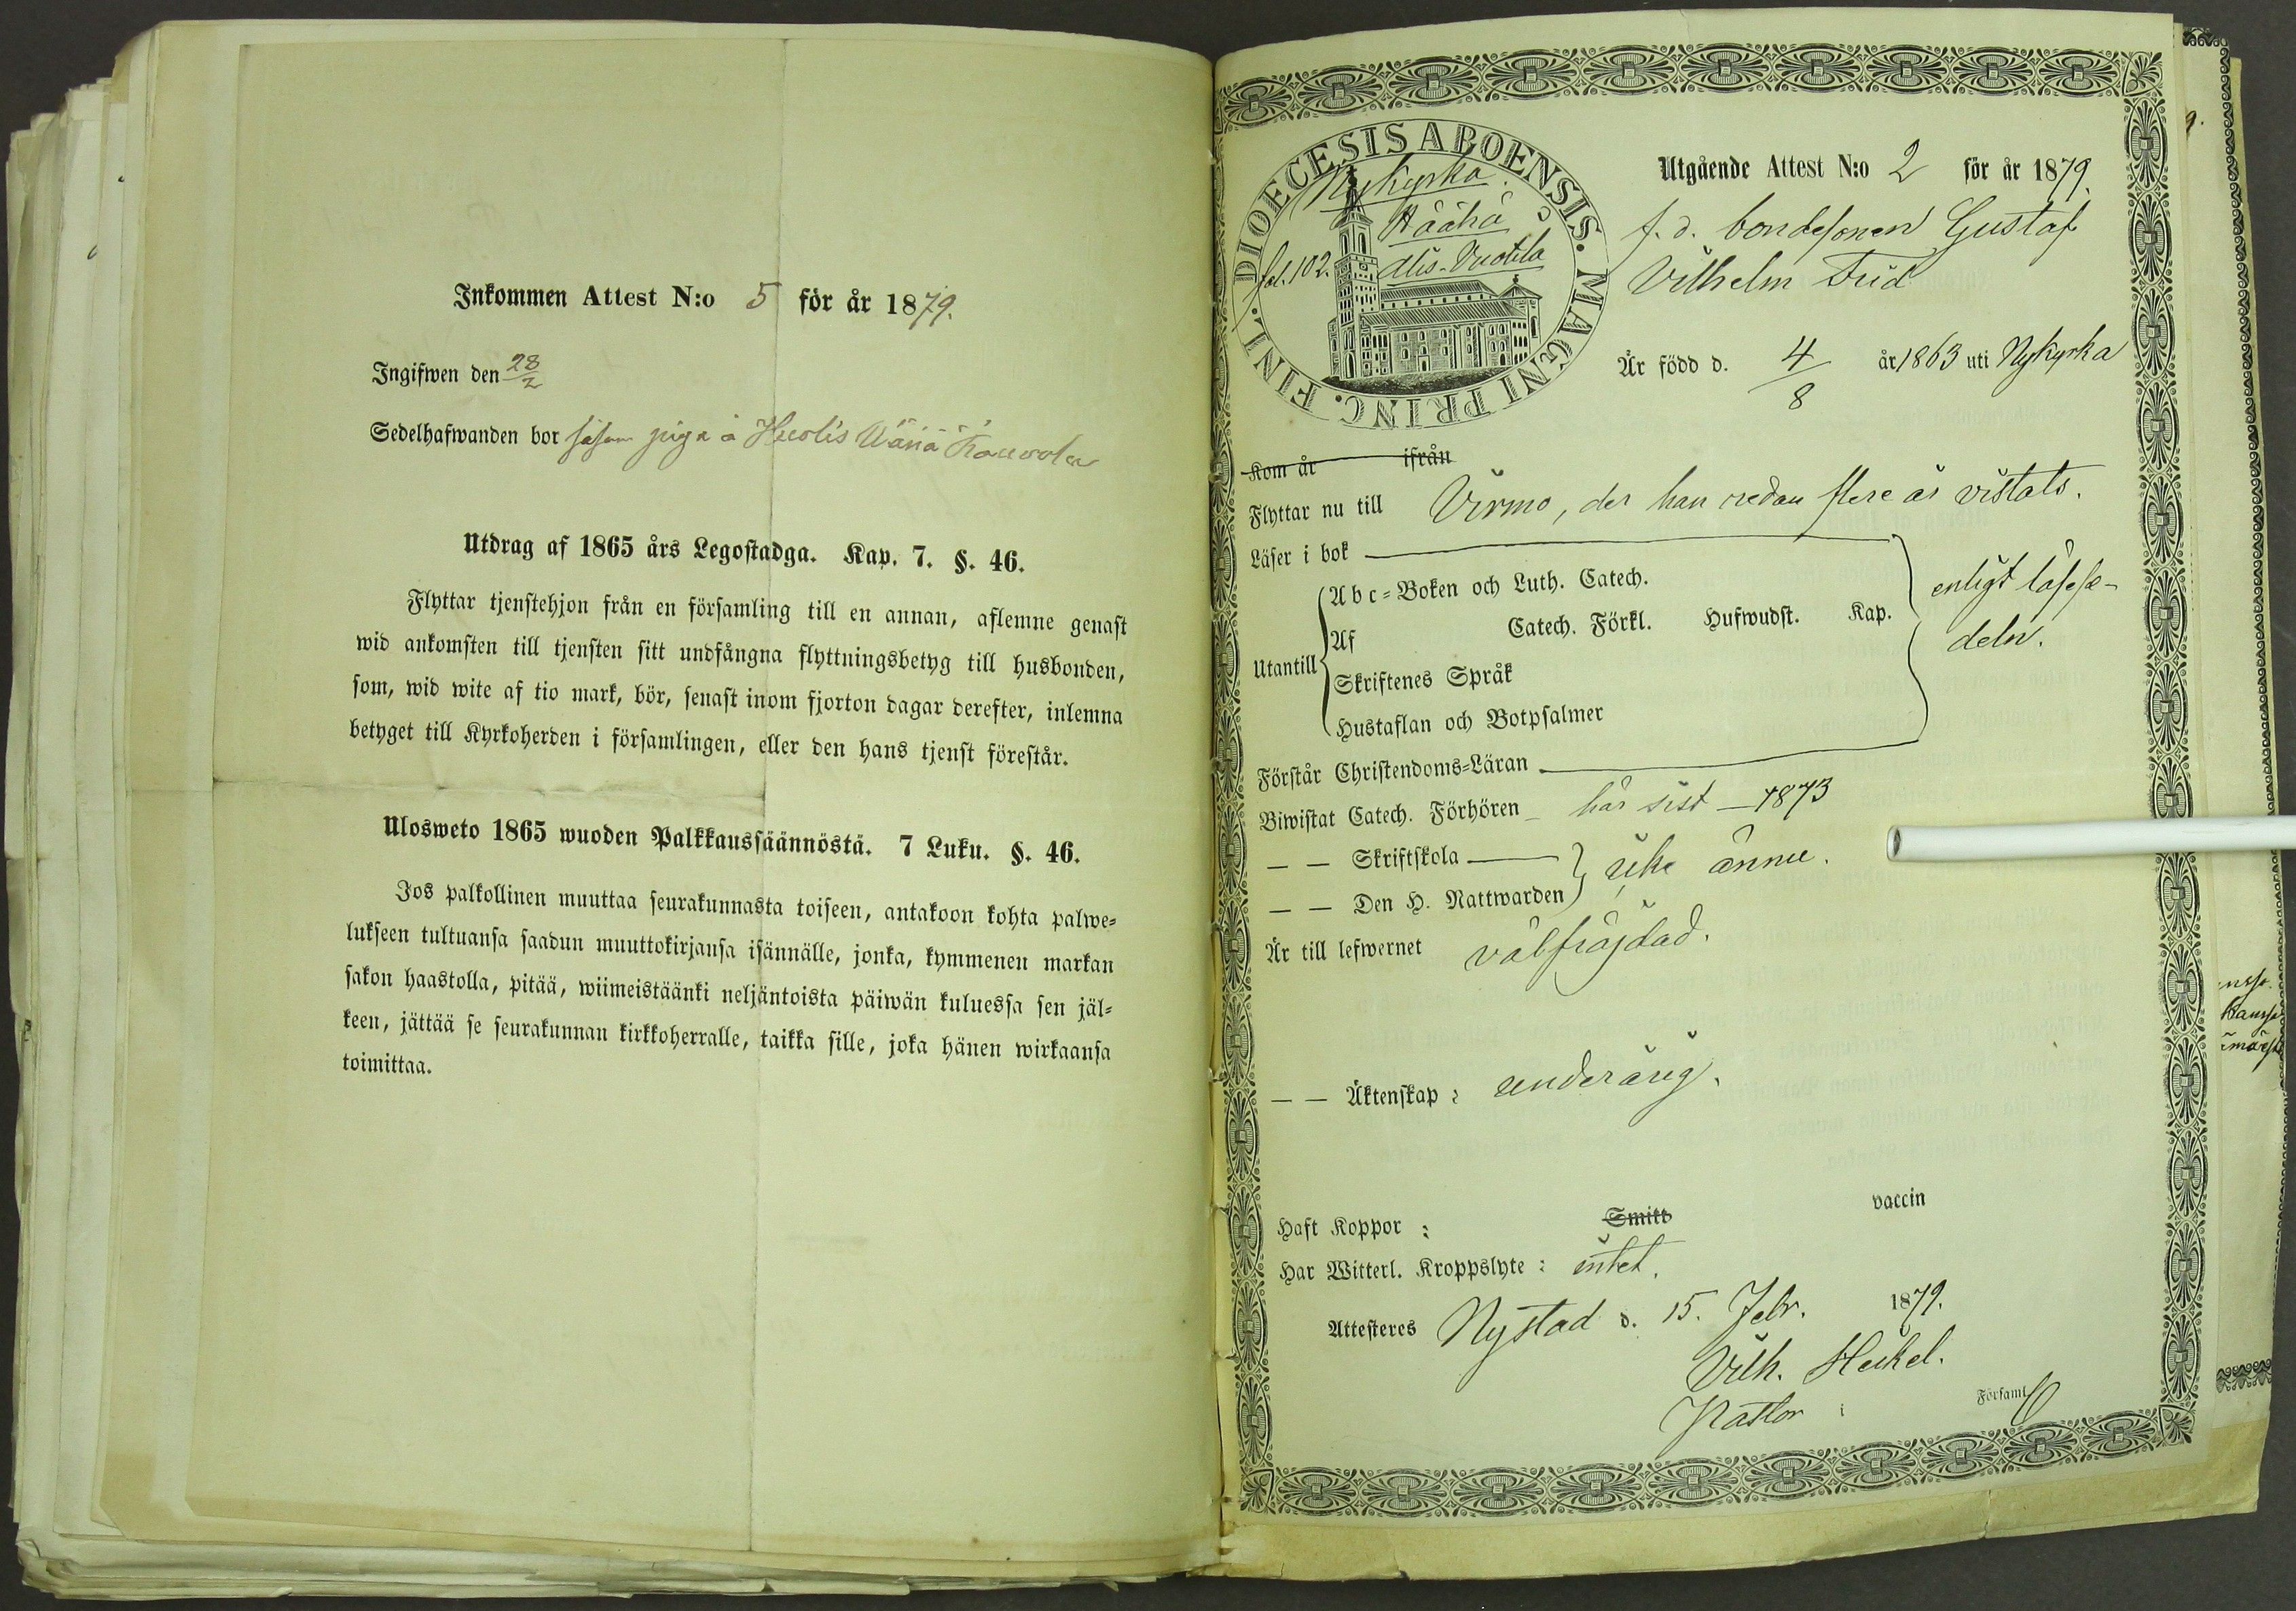 Inkommen Attest N:o 5 för år 1879.
Ingifwen den 28/2
Sedelhafwanden bor såsom piga å Huolis Wänä Kauvola
Utdrag af 1865 års Legostadga. Kap. 7. §. 46.
Flyttar tjenstehjon från en församling till en annan, aflemne genast
wid ankomsten till tjensten sitt undfångna flyttningsbetyg till husbonden,
som, wid wite af tio mark, bör, senast inom fjorton dagar derefter, inlemna
betyget till Kyrkoherden i församlingen, eller den hans tjenst förestår.
Ulosweto 1865 wuoden Palkkaussäännöstä. 7 Luku. §. 46.
Jos palkollinen muuttaa seurakunnasta toiseen, antakoon kohta palwe=
lukseen tultuansa saadun muuttokirjansa isännälle, jonka, kymmenen markan
sakon haastolla, pitää, wiimeistäänki neljäntoista päiwän kuluessa sen jäl=
keen, jättää se seurakunnan kirkkoherralle, taikka sille, joka hänen wirkaansa
toimittaa.
DIOECESIS ABOENSIS. MAGNI PRINC. FINL.
Nykyrka.
Häähä
fol. 102. Alis-Vuotila
Utgående Attest N:o 2 för år 1879.
f. d. bondesonen Gustaf
Vilhelm
Är född d. 4/8 år 1863 uti Nykyrka
Kom år ifrån
Flyttar nu till Virmo, der han redan flere år vistats.
Läser i bok
Utantill
Abc=Boken och Luth. Catech.
Af Catech. Förkl. Hufwudst. Kap.
Skriftenes Språk
Hustaflan och Botpsalmer
enligt läsese-
deln.
Förstår Christendoms=Läran
Biwistat Catech. Förhören här sist – 1873
— — Skriftskola
— — Den H. Nattwarden
icke ännu.
Är till lefwernet välfräjdad.
— — Äktenskap: underårig.
Haft Koppor: Smitt vaccin
Har Witterl. Kroppslyte: intet.
Attesteres Nystad d. 15. Febr. 1879.
Vilh. Heikel.
Pastor i Församl.